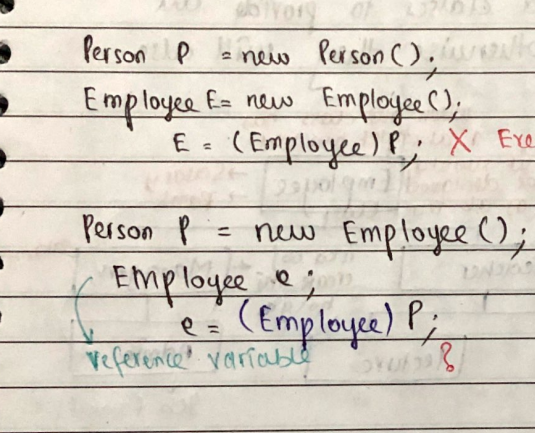 Person P = new Person();
Employee E = new Employee();
E = (Employee) P; X
Person P = new Employee();
EMployee e;
e = (Employee) P;
reference variable ?